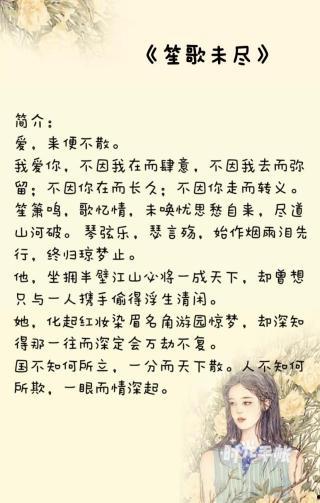 《笙歌未尽》
简介:
爱，来便不散。
我爱你，不因我在而肆意，不因我去而弥
留；不因你在而长久；不因你走而转义。
笙箫鸣，歌忆情，未唤忧思愁自来，尽道
山河破。 琴弦乐，瑟言殇，始作烟雨泪先
行，终归琼梦止。
他，坐拥半壁江山必将一成天下，却曾想
只与一人携手偷得浮生清闲。
她，化起红妆染眉名角游园惊梦，却深知
得那一往而深定会万劫不复。
国不知何所立，一分而天下散。人不知何
所欺，一眼而情深起。
时光手帐